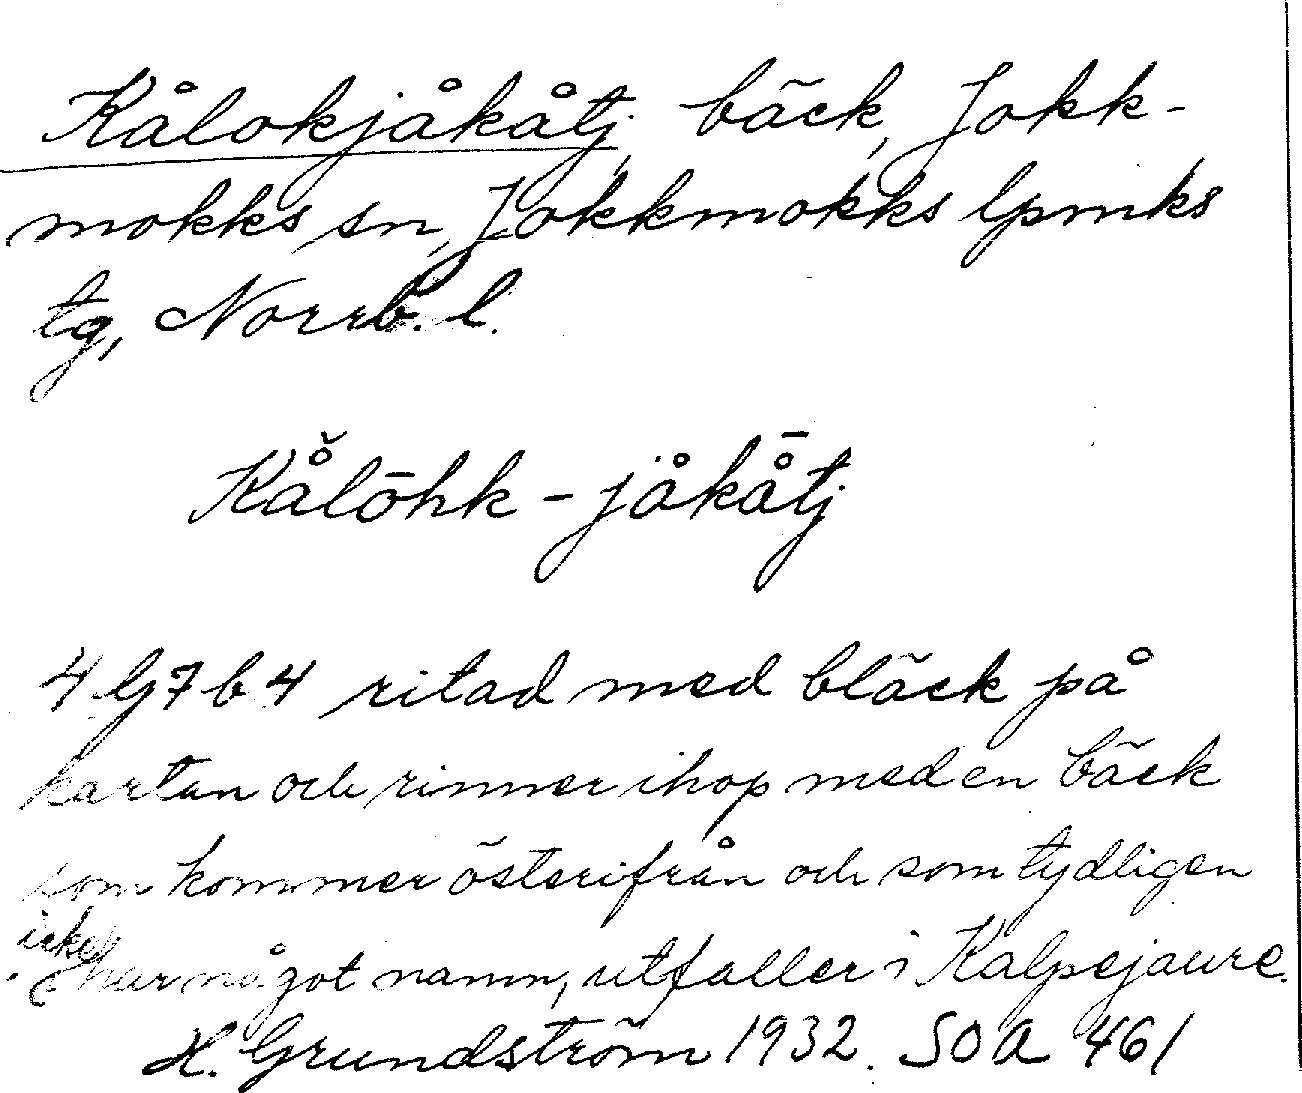 Kålokjåkåtj, bäck, Jokk-
mokks sn, Jokkmokks lpmks
tg, Norrb. l.
Kå̆lōhk - jåkå̄tj
4 G 7 b 4 ritad med bläck på
kartan och rinner ihop med en bäck
som kommer österifrån och som tydligen
icke
har något namn, utfaller i Kalpejaure.
H. Grundström 1932. SOA 461